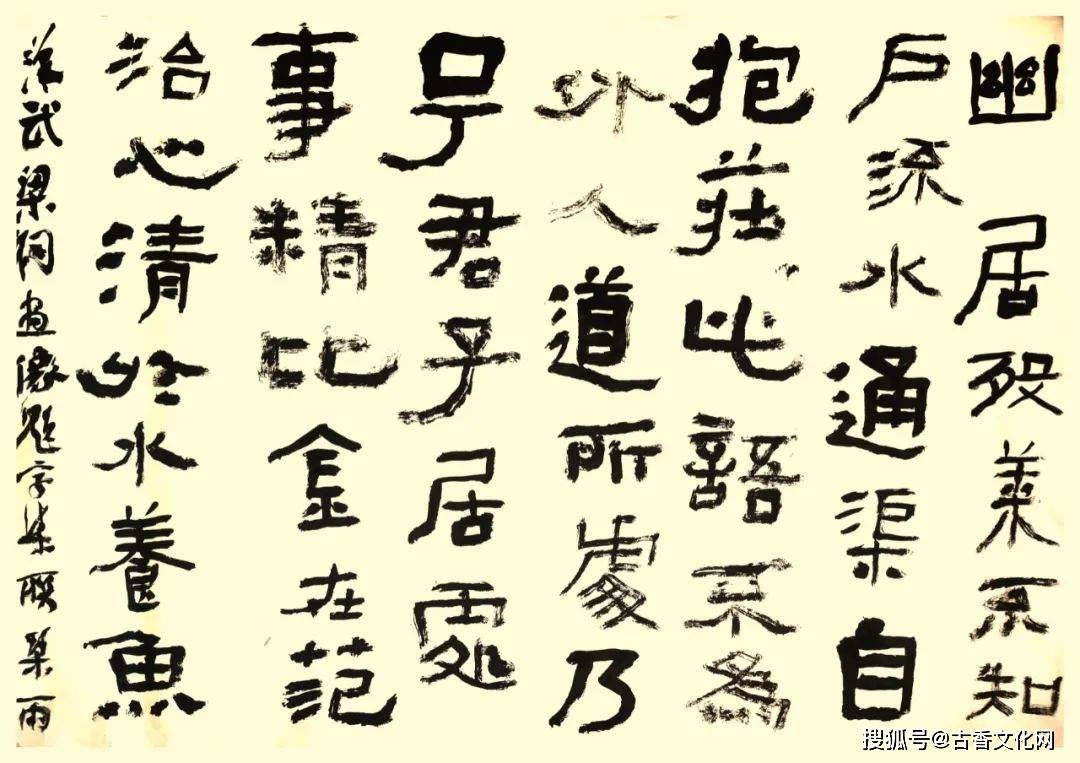 幽居殁不知
户流水通渠自
抱莊此語不為
外人道所處乃
号君子居處
事精比金在范
治心清於水養魚
漢武梁祠画像题字集联雨
搜狐号@古香文化网